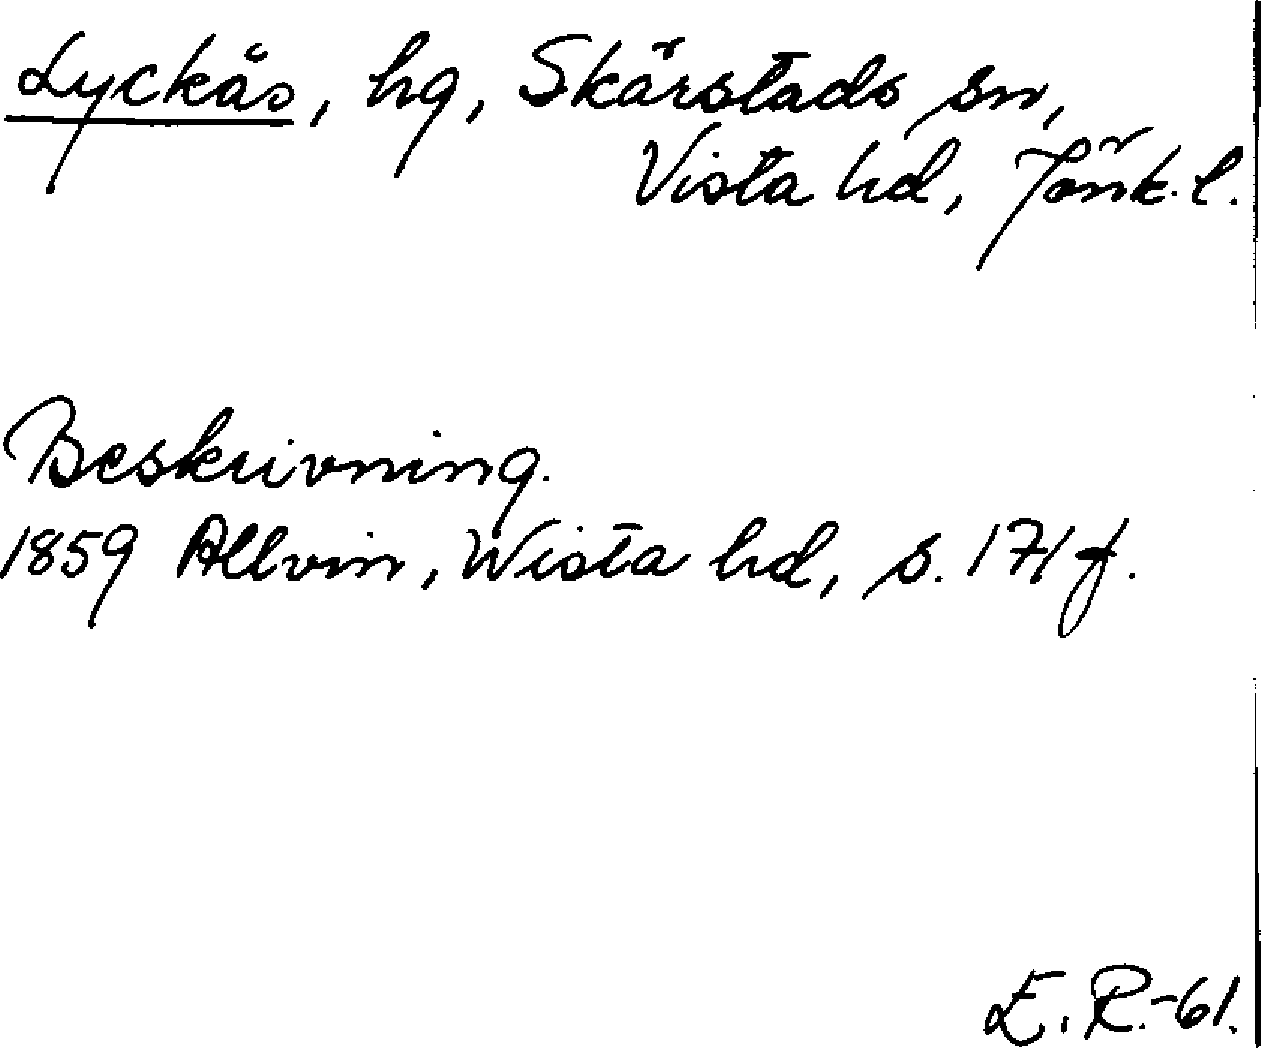 Lyckås, hg, Skärstads sn,
Vista hd, Jönk. l.
Beskrivning.
1859 Allvin, Wista hd, s. 171 f.
E. R.-61.